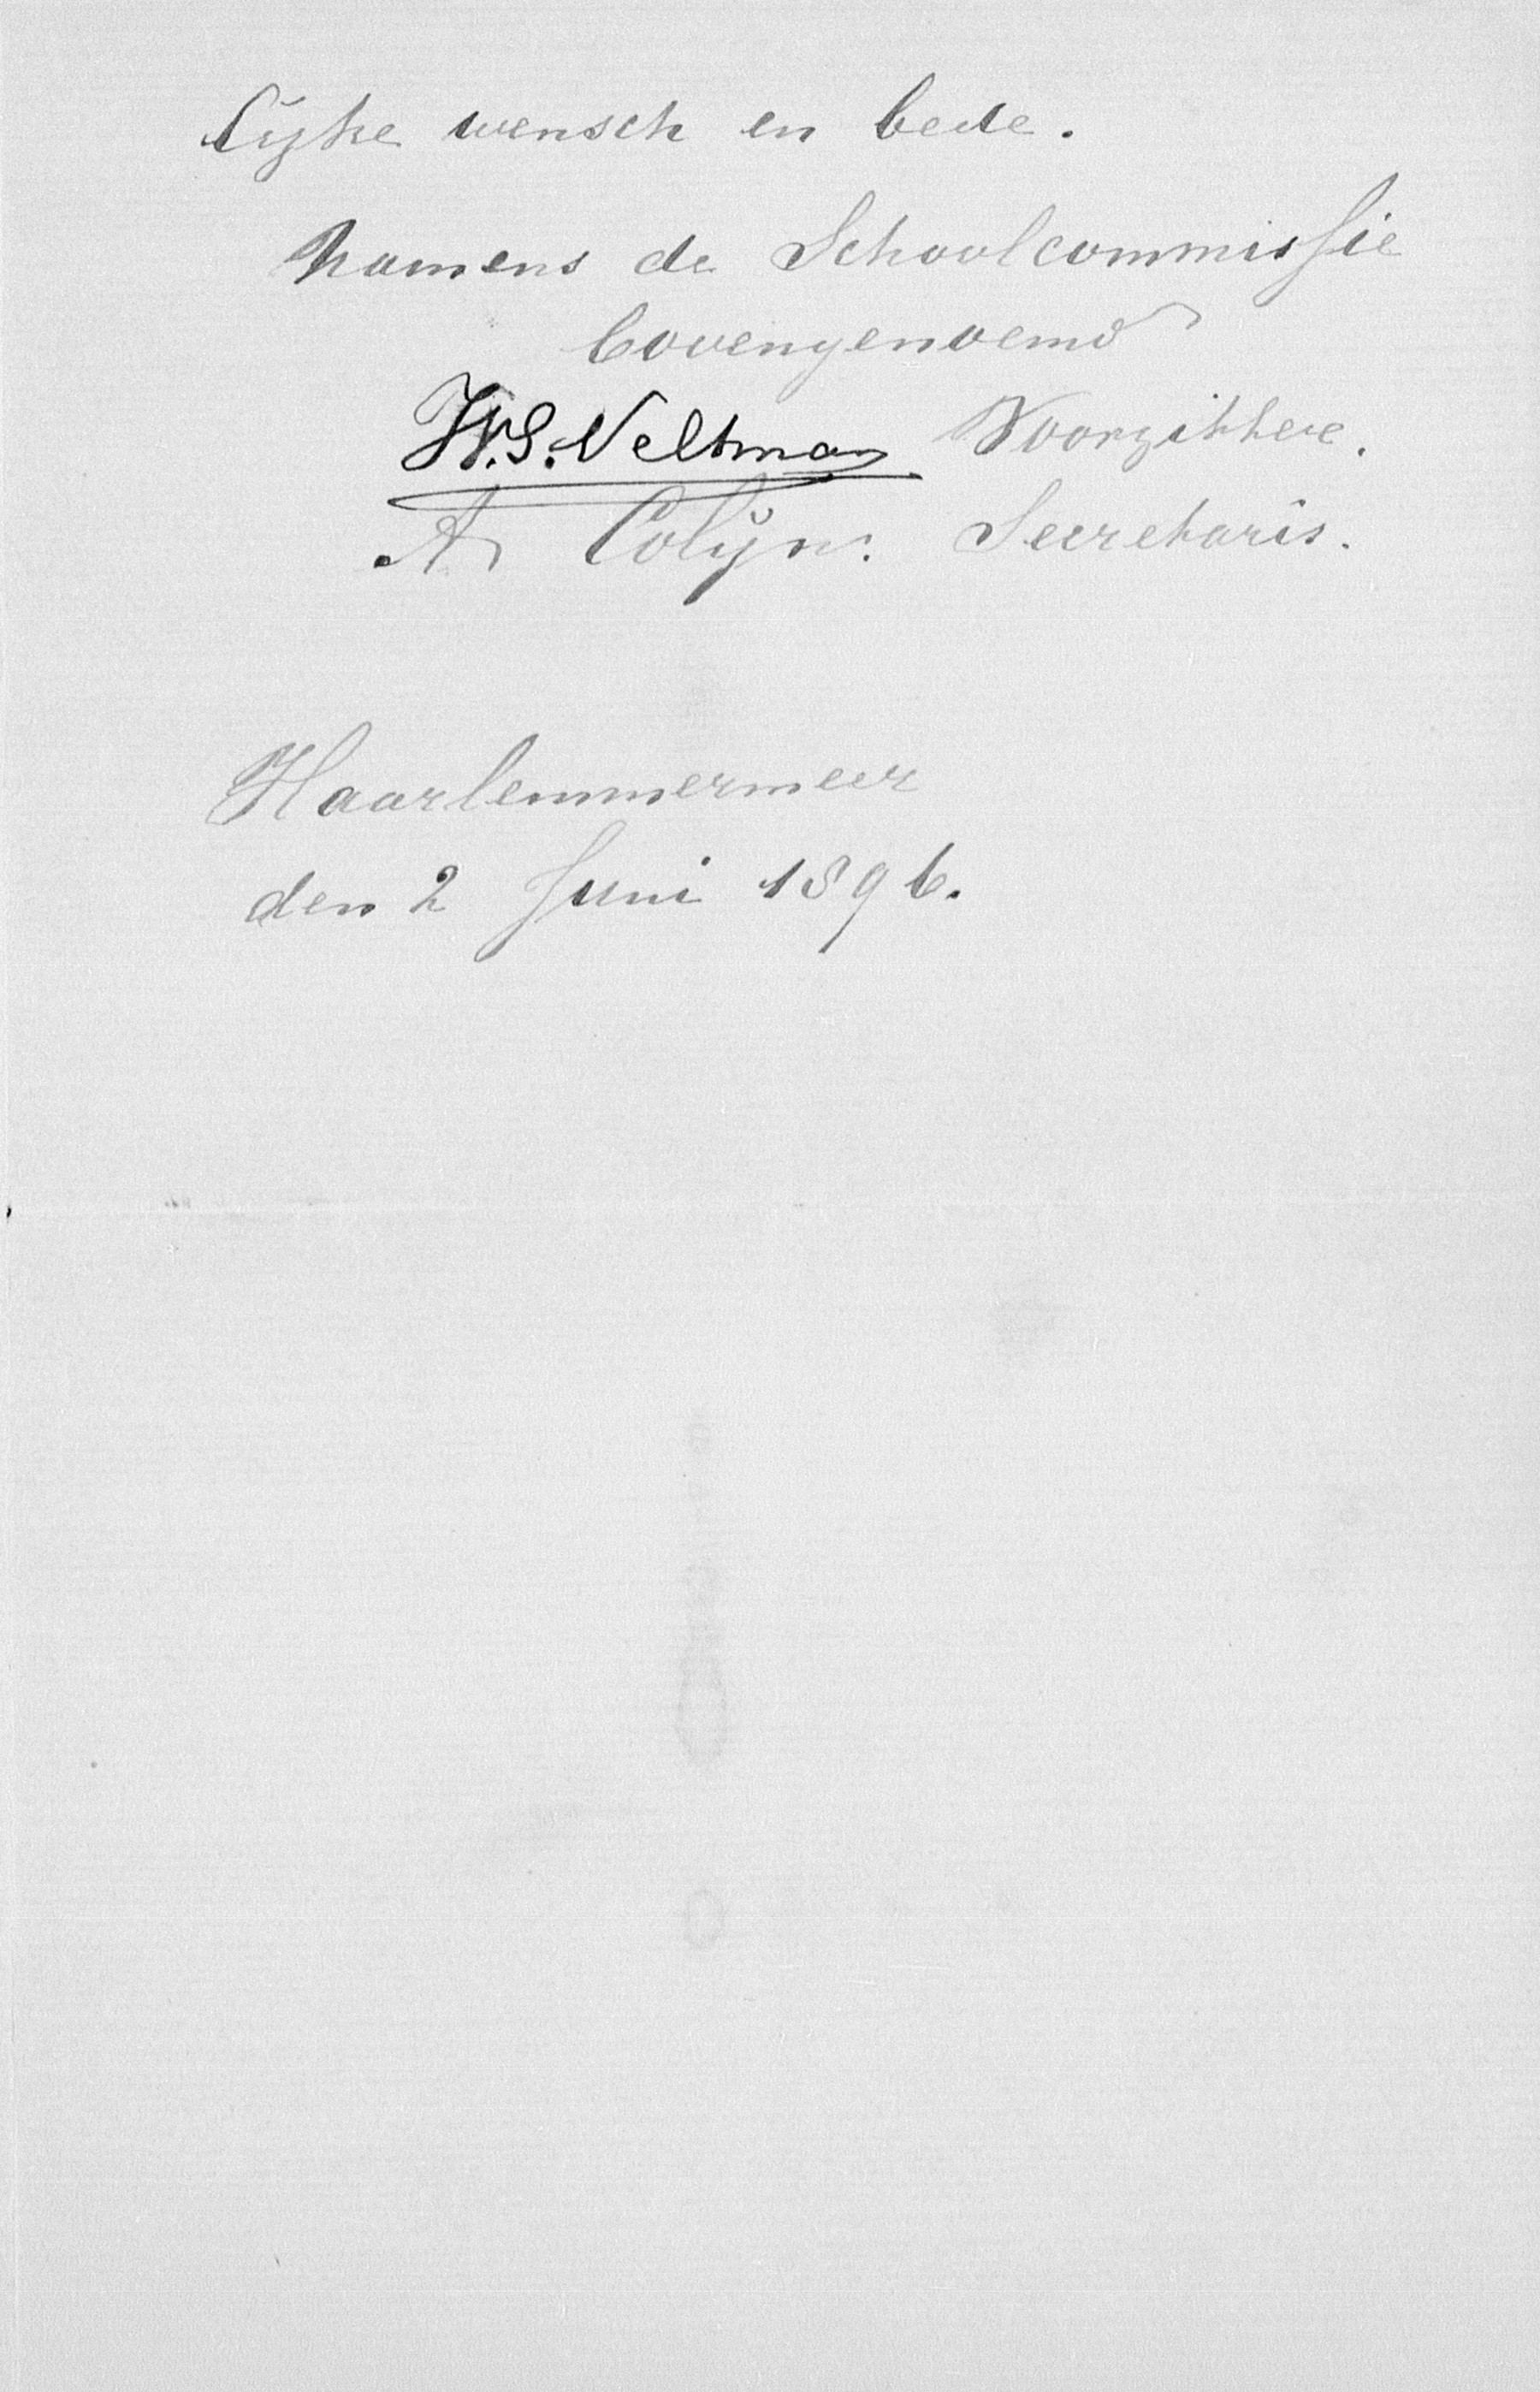 lijke wensch en bede.
Namens de Schoolcommissie
bovengenoemd
H.S. Veltman Voorzitter.
A Colijn. Secretaris.
Haarlemmermeer
den 2 Juni 1896.